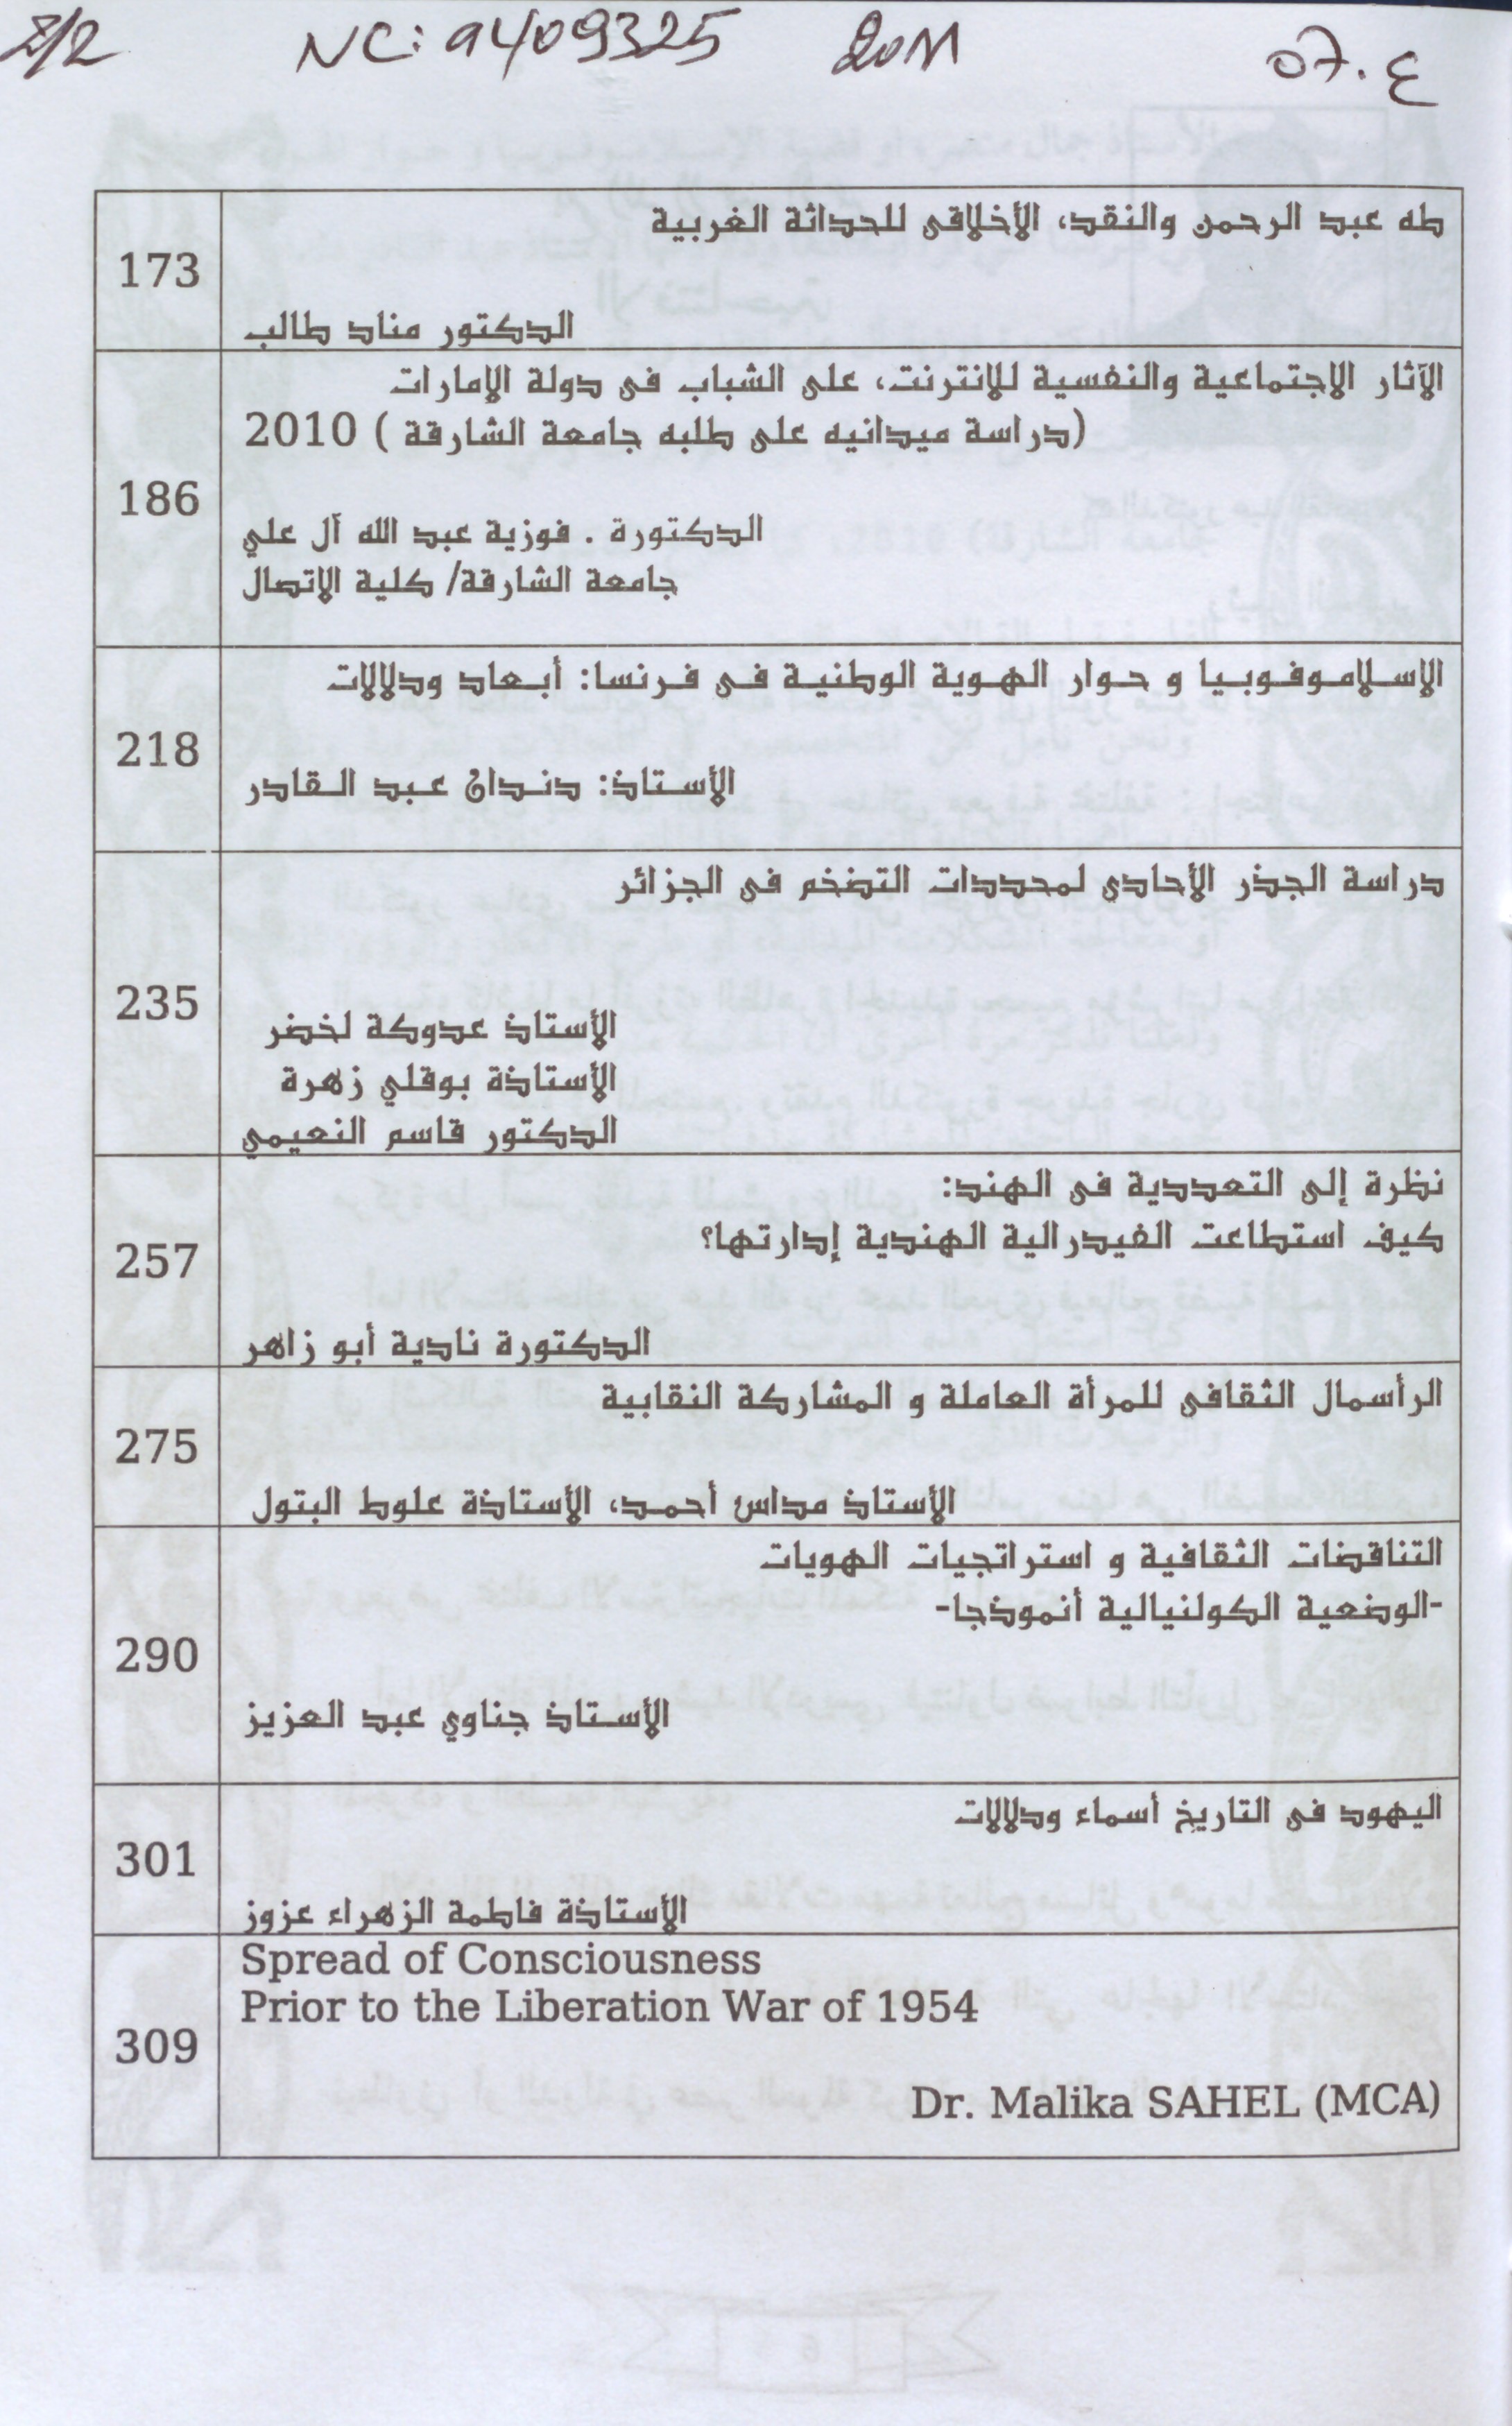 2/2 NC: 9409325 2011 ع.07
طه عبد الرحمن والنقد، الأخلاقى للحداثة الغربية
173
الدكتور مناد طالب
الآثار الاجتماعية والنفسية للانترنت، على الشباب فى دولة الإمارات
(دراسة ميدانيه على طلبه جامعة الشارقة ) 2010
186
الدكتورة . فوزية عبد الله آل علي
جامعة الشارقة/ كلية الاتصال
الإسلاموفوبيا و حوار الهوية الوطنية فى فرنسا: أبعاد ودلالات
218
الأستاذ: دندان عبد القادر
دراسة الجذر الأحادى لمحددات التضخم فى الجزائر
235
الأستاذ عدوكة لخضر
الأستاذة بوقلي زهرة
الدكتور قاسم النعيمي
نظرة إلى التعددية فى الهند:
كيف استطاعت الفيدرالية الهندية إدارتها؟
257
الدكتورة نادية أبو زاهر
الرأسمال الثقافى للمرأة العاملة و المشاركة النقابية
275
الأستاذ مداس أحمد، الأستاذة علوط البتول
التناقضات الثقافية و استراتجيات الهويات
-الوضعية الكولنيالية أنموذجا-
290
الأستاذ جناوي عبد العزيز
اليهود فى التاريخ أسماء ودلالات
301
الأستاذة فاطمة الزهراء عزوز
Spread of Consciousness
Prior to the Liberation War of 1954
309
Dr. Malika SAHEL (MCA)